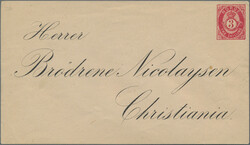 Herrer
Brödrene Nicolaysen
Christiania
3